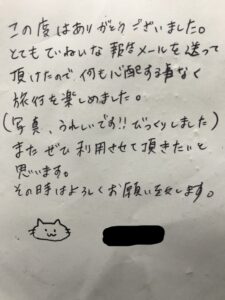 この度はありがとうございました。
とてもていねいな報告メールを送って
頂けたので、何も心配する事なく
旅行を楽しめました。
(写真、うれしいです!!びっくりしました)
またぜひ利用させて頂きたいと
思います。
その時はよろしくお願い致します。